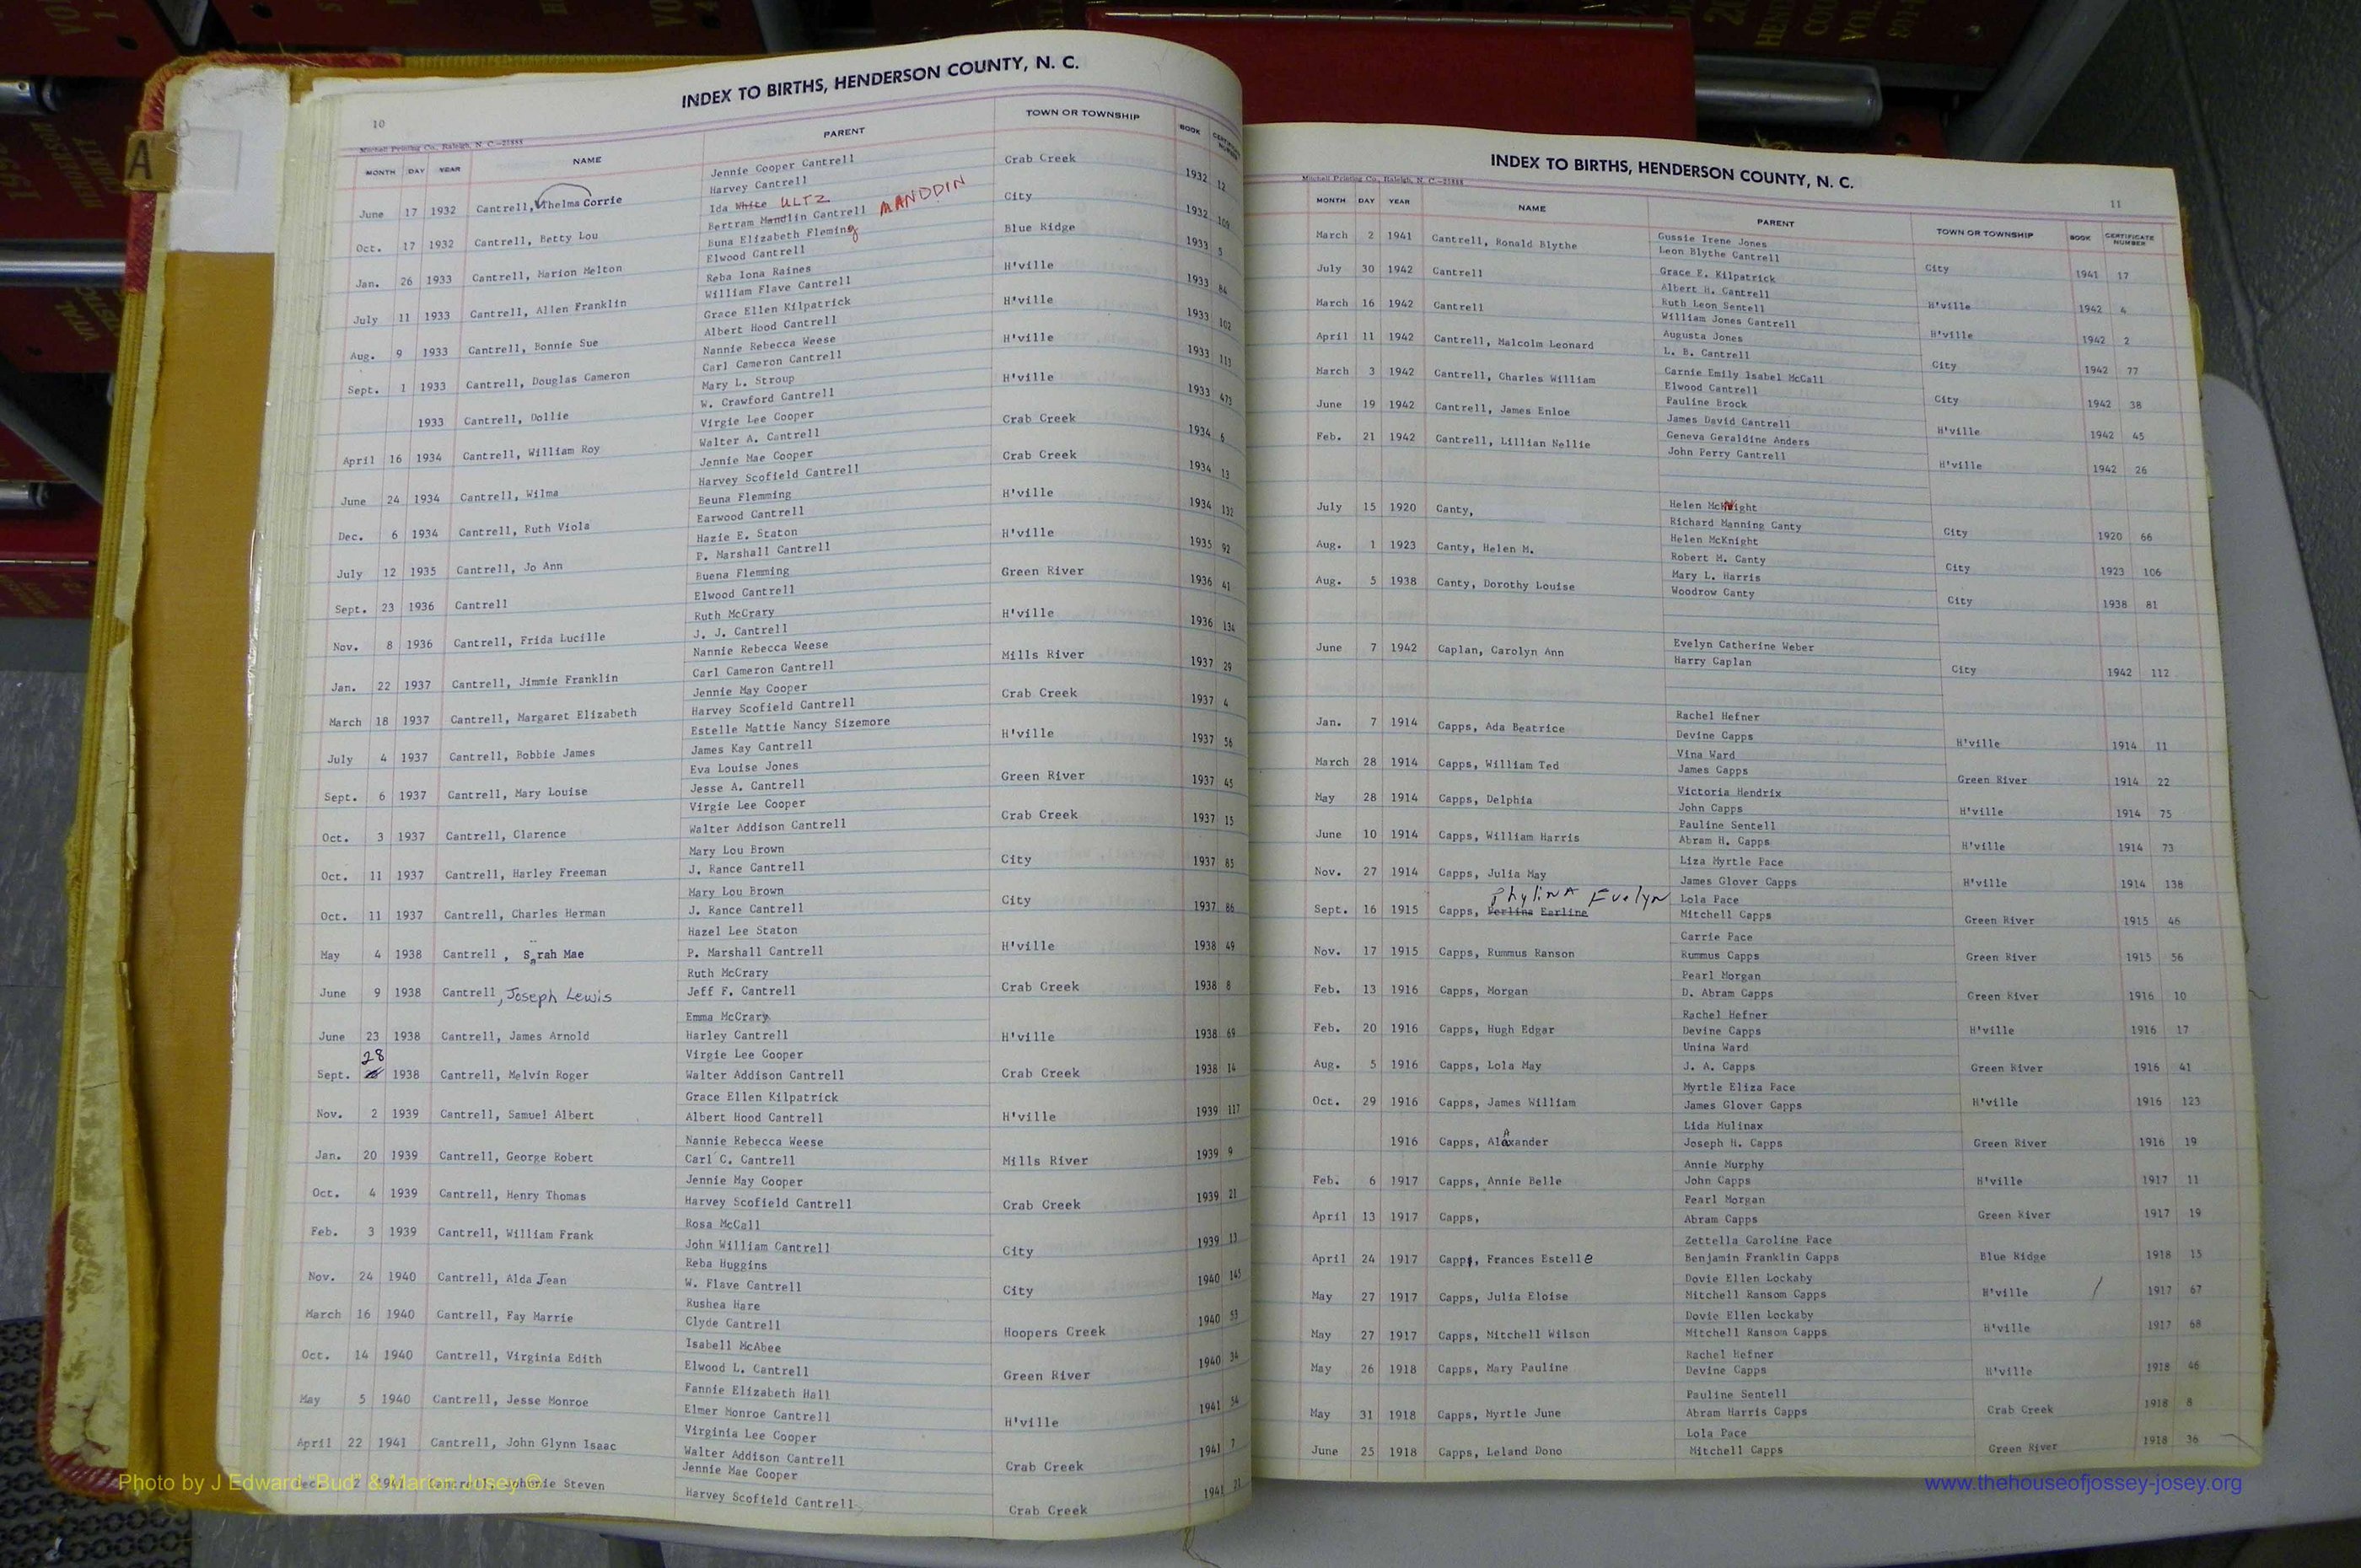 INDEX TO BIRTHS, HENDERSON COUNTY, N. C.
10
Mitchell Printing Co., Raleigh, N. C.—21888
MONTH DAY YEAR NAME PARENT TOWN OR TOWNSHIP BOOK CERTIFICATE NUMBER
Jennie Cooper Cantrell
June 17 1932 Cantrell, Thelma Corrie Harvey Cantrell Crab Creek 1932 12
Ida White ULTZ
Oct. 17 1932 Cantrell, Betty Lou Bertram Mandlin Cantrell MANDDIN City 1932 109
Buna Elizabeth Fleming
Jan. 26 1933 Cantrell, Marion Melton Elwood Cantrell Blue Ridge 1933 5
Reba Iona Raines
July 11 1933 Cantrell, Allen Franklin William Flave Cantrell H'ville 1933 84
Grace Ellen Kilpatrick
Aug. 9 1933 Cantrell, Bonnie Sue Albert Hood Cantrell H'ville 1933 102
Nannie Rebecca Weese
Sept. 1 1933 Cantrell, Douglas Cameron Carl Cameron Cantrell H'ville 1933 113
Mary L. Stroup
1933 Cantrell, Dollie W. Crawford Cantrell H'ville 1933 473
Virgie Lee Cooper
April 16 1934 Cantrell, William Roy Walter A. Cantrell Crab Creek 1934 6
Jennie Mae Cooper
June 24 1934 Cantrell, Wilma Harvey Scofield Cantrell Crab Creek 1934 13
Beuna Flemming
Dec. 6 1934 Cantrell, Ruth Viola Earwood Cantrell H'ville 1934 132
Hazie E. Staton
July 12 1935 Cantrell, Jo Ann P. Marshall Cantrell H'ville 1935 92
Buena Flemming
Sept. 23 1936 Cantrell Elwood Cantrell Green River 1936 41
Ruth McCrary
Nov. 8 1936 Cantrell, Frida Lucille J. J. Cantrell H'ville 1936 134
Nannie Rebecca Weese
Jan. 22 1937 Cantrell, Jimmie Franklin Carl Cameron Cantrell Mills River 1937 29
Jennie May Cooper
March 18 1937 Cantrell, Margaret Elizabeth Harvey Scofield Cantrell Crab Creek 1937 4
Estelle Mattie Nancy Sizemore
July 4 1937 Cantrell, Bobbie James James Kay Cantrell H'ville 1937 56
Eva Louise Jones
Sept. 6 1937 Cantrell, Mary Louise Jesse A. Cantrell Green River 1937 45
Virgie Lee Cooper
Oct. 3 1937 Cantrell, Clarence Walter Addison Cantrell Crab Creek 1937 15
Mary Lou Brown
Oct. 11 1937 Cantrell, Harley Freeman J. Rance Cantrell City 1937 85
Mary Lou Brown
Oct. 11 1937 Cantrell, Charles Herman J. Rance Cantrell City 1937 86
Hazel Lee Staton
May 4 1938 Cantrell , Sarah Mae P. Marshall Cantrell H'ville 1938 49
Ruth McCrary
June 9 1938 Cantrell, Joseph Lewis Jeff F. Cantrell Crab Creek 1938 8
Emma McCrary
June 23 1938 Cantrell, James Arnold Harley Cantrell H'ville 1938 69
28 Virgie Lee Cooper
Sept. 1938 Cantrell, Melvin Roger Walter Addison Cantrell Crab Creek 1938 14
Grace Ellen Kilpatrick
Nov. 2 1939 Cantrell, Samuel Albert Albert Hood Cantrell H'ville 1939 117
Nannie Rebecca Weese
Jan. 20 1939 Cantrell, George Robert Carl C. Cantrell Mills River 1939 9
Jennie May Cooper
Oct. 4 1939 Cantrell, Henry Thomas Harvey Scofield Cantrell Crab Creek 1939 21
Rosa McCall
Feb. 3 1939 Cantrell, William Frank John William Cantrell City 1939 13
Reba Huggins
Nov. 24 1940 Cantrell, Alda Jean W. Flave Cantrell City 1940 145
Rushea Hare
March 16 1940 Cantrell, Fay Marrie Clyde Cantrell Hoopers Creek 1940 53
Isabell McAbee
Oct. 14 1940 Cantrell, Virginia Edith Elwood L. Cantrell Green River 1940 34
Fannie Elizabeth Hall
May 5 1940 Cantrell, Jesse Monroe Elmer Monroe Cantrell H'ville 1941 54
Virginia Lee Cooper
April 22 1941 Cantrell, John Glynn Isaac Walter Addison Cantrell Crab Creek 1941 7
Jennie Mae Cooper
Steven Harvey Scofield Cantrell Crab Creek 1941 21
INDEX TO BIRTHS, HENDERSON COUNTY, N. C.
11
Mitchell Printing Co., Raleigh, N. C.—21888
MONTH DAY YEAR NAME PARENT TOWN OR TOWNSHIP BOOK CERTIFICATE NUMBER
Gussie Irene Jones
March 2 1941 Cantrell, Ronald Blythe Leon Blythe Cantrell City 1941 17
Grace E. Kilpatrick
July 30 1942 Cantrell Albert H. Cantrell H'ville 1942 4
Ruth Leon Sentell
March 16 1942 Cantrell William Jones Cantrell H'ville 1942 2
Augusta Jones
April 11 1942 Cantrell, Malcolm Leonard L. B. Cantrell City 1942 77
Carnie Emily Isabel McCall
March 3 1942 Cantrell, Charles William Elwood Cantrell City 1942 38
Pauline Brock
June 19 1942 Cantrell, James Enloe James David Cantrell H'ville 1942 45
Geneva Geraldine Anders
Feb. 21 1942 Cantrell, Lillian Nellie John Perry Cantrell H'ville 1942 26
Helen McKnight
July 15 1920 Canty, Richard Manning Canty City 1920 66
Helen McKnight
Aug. 1 1923 Canty, Helen M. Robert M. Canty City 1923 106
Mary L. Harris
Aug. 5 1938 Canty, Dorothy Louise Woodrow Canty City 1938 81
Evelyn Catherine Weber
June 7 1942 Caplan, Carolyn Ann Harry Caplan City 1942 112
Rachel Hefner
Jan. 7 1914 Capps, Ada Beatrice Devine Capps H'ville 1914 11
Vina Ward
March 28 1914 Capps, William Ted James Capps Green River 1914 22
Victoria Hendrix
May 28 1914 Capps, Delphia John Capps H'ville 1914 75
Pauline Sentell
June 10 1914 Capps, William Harris Abram H. Capps H'ville 1914 73
Liza Myrtle Pace
Nov. 27 1914 Capps, Julia May James Glover Capps H'ville 1914 138
PhylinA Evelyn Lola Pace
Sept. 16 1915 Capps, Verlina Earline Mitchell Capps Green River 1915 46
Carrie Pace
Nov. 17 1915 Capps, Rummus Ranson Rummus Capps Green River 1915 56
Pearl Morgan
Feb. 13 1916 Capps, Morgan D. Abram Capps Green River 1916 10
Rachel Hefner
Feb. 20 1916 Capps, Hugh Edgar Devine Capps H'ville 1916 17
Unina Ward
Aug. 5 1916 Capps, Lola May J. A. Capps Green River 1916 41
Myrtle Eliza Pace
Oct. 29 1916 Capps, James William James Glover Capps H'ville 1916 123
Lida Mulinax
1916 Capps, Alaxander Joseph H. Capps Green River 1916 19
Annie Murphy
Feb. 6 1917 Capps, Annie Belle John Capps H'ville 1917 11
Pearl Morgan
April 13 1917 Capps, Abram Capps Green River 1917 19
Zettella Caroline Pace
April 24 1917 Capps, Frances Estelle Benjamin Franklin Capps Blue Ridge 1918 15
Dovie Ellen Lockaby
May 27 1917 Capps, Julia Eloise Mitchell Ransom Capps H'ville 1917 67
Dovie Ellen Lockaby
May 27 1917 Capps, Mitchell Wilson Mitchell Ransom Capps H'ville 1917 68
Rachel Hefner
May 26 1918 Capps, Mary Pauline Devine Capps H'ville 1918 46
Pauline Sentell
May 31 1918 Capps, Myrtle June Abram Harris Capps Crab Creek 1918 8
Lola Pace
June 25 1918 Capps, Leland Dono Mitchell Capps Green River 1918 36
A
Photo by J Edward "Bud" & Marion Josey ©
www.thehouseofjossey-josey.org